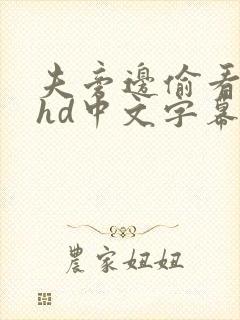 夫旁邊偷看
hd中文字幕
農家妞妞